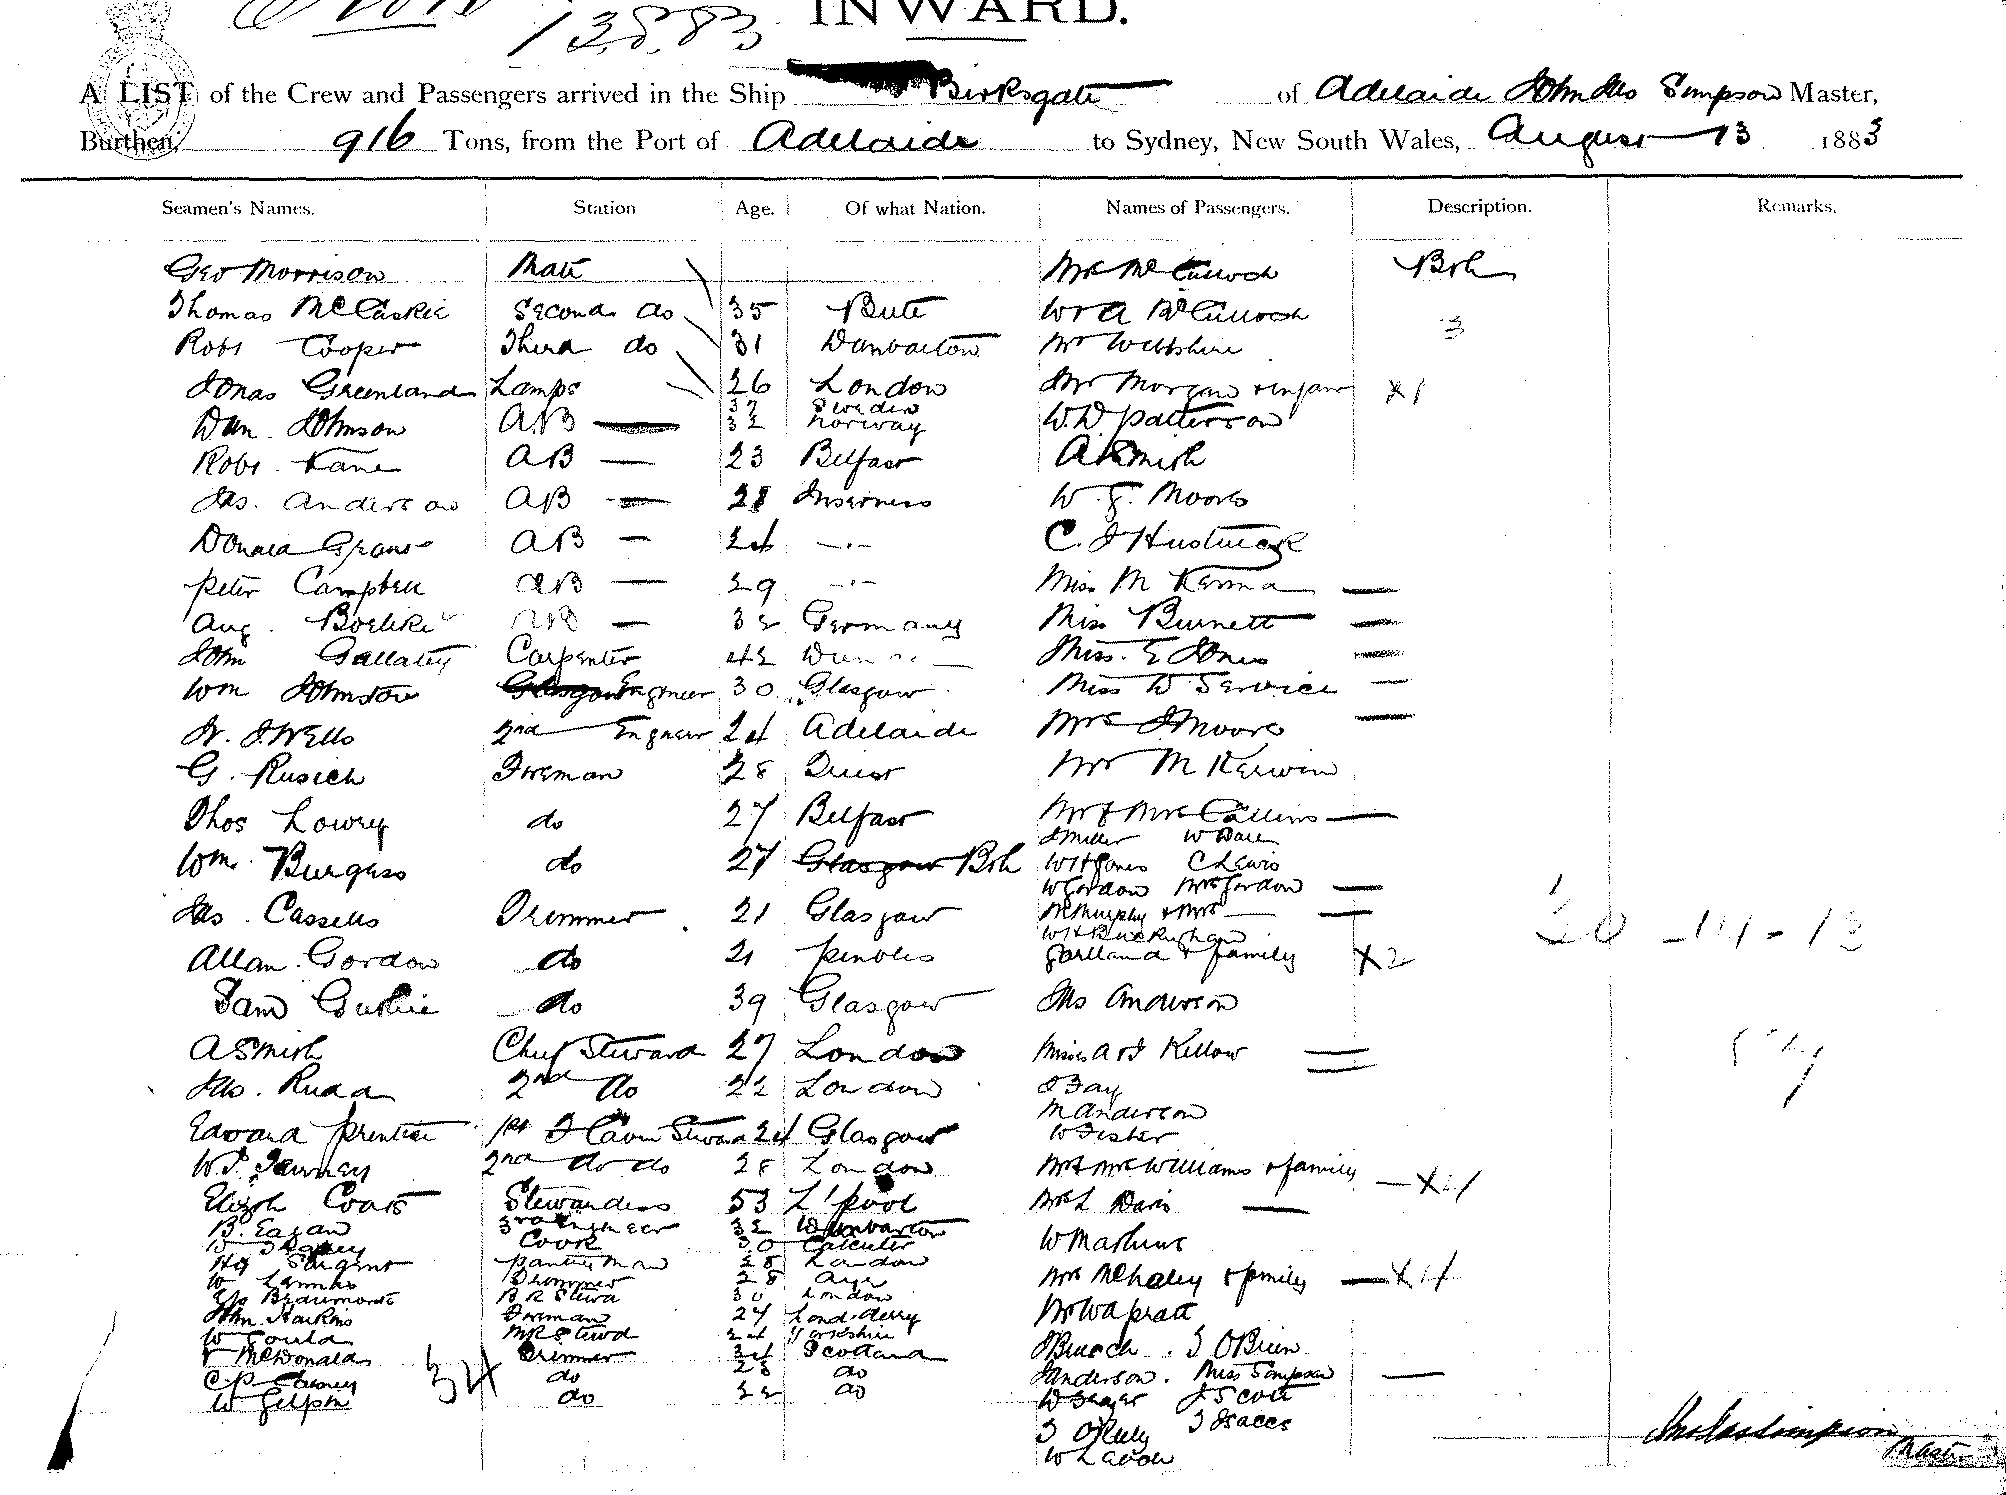 13.8.83
INWARD.
A LIST of the Crew and Passengers arrived in the Ship Birksgate of Adelaide John Jas Simpson Master,
Burthen, 916 Tons, from the Port of Adelaide to Sydney, New South Wales, August 13 1883
Seamen's Names. Station Age. Of what Nation. Names of Passengers. Description. Remarks.
Geo Morrison Mate Mrs McCulloch Bth
Thomas McCaskie Second do 35 Bute W & A McCulloch 3
Robt Cooper Third do 31 Dunbarton Mr Wiltshire
Jonas Greenland Lamps 26 London Mrs Morgan & infant x1
37 Sweden
Dan Johnson AB 32 Norway W. D Patterson
Robt Kane AB 23 Belfast A Smith
Jas. Anderson AB 28 Inverness W. J. Moores
Donald Grant AB 24 —"— C. J
Peter Campbell AB 29 —"— Miss M
Aug. AB 32 Germany Miss Burnett
John Gallatly Carpenter 42 Miss. E Jones
Wm Johnston Engineer 30 Glasgow Miss W Service
W. J. Wells 2nd Engneer 24 Adelaide Mrs J Moore
G. Rusich Fireman 28 Mr M Kerwin
Thos Lowry do 27 Belfast Mr & Mrs Collins
J Miller W Dale
Wm. Burgess do 27 Glasgow Bth W H Jones C Lewis
W Gordon Mrs Gordon
Jas. Cassells Trimmer 21 Glasgow M Murphy & Mrs
Allan. Gordon do 21 Garland & family x2
20 - 14 - 13
Sam Guthrie do 39 Glasgow Jas Anderson
A Smith Chief Steward 27 London Misses A & J Kellow
Jas. Rudd 2nd do 22 London J Fay
M Anderson
Edward Prentice 1st Steward 24 Glasgow W Fister
W. P. Tawney 2nd do do 28 London Mr & Mrs Williams & family x4
Elizth Coats Stewardess 53 L'pool Mrs L Davis
B. Eagan 3rd Engineer 32 Dunbarton
W Cook 30 Calcutter W Mathews
Hy Sargent Pantry man 28 London
W Trimmer 28 Ayr Mrs McHaley & family x4
Beaumont B R Stewd 30 London
John Harkins Fireman 27 Londderry Mr W A Pratt
W Gould M R Stewd 24 Yorkshire
McDonald Trimmer 34 Scotland J O'Brien
C. P. do 23 do J Anderson. Miss Simpson
W Gilpin do 22 do W J Scott
34
J Isaacs
W
Jno Jas Simpson
Master